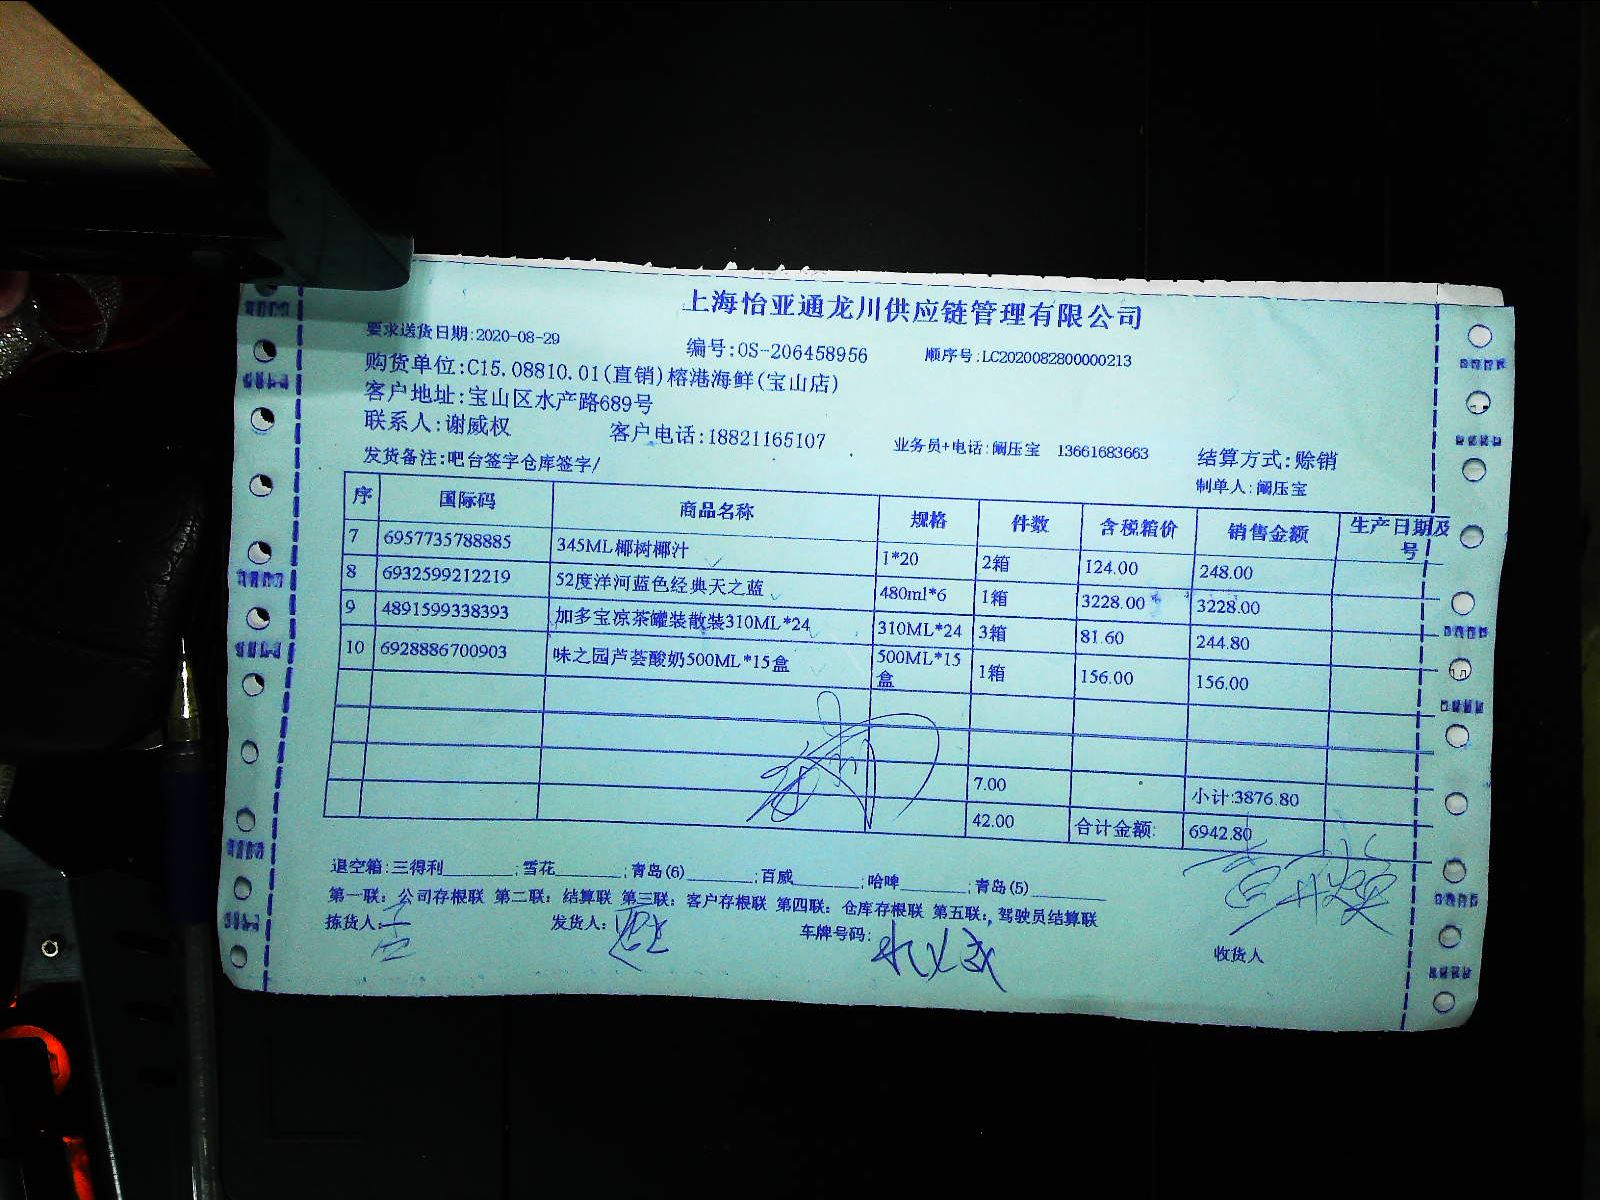 上海怡亚通龙川供应链管理有限公司
要求送货日期:2020-08-29 编号:OS-206458956 顺序号:LC2020082800000213
购货单位:C15.08810.01(直销)榕港海鲜(宝山店)
客户地址:宝山区水产路689号
联系人:谢威权 客户电话:18821165107 业务员+电话:阚压宝 13661683663 结算方式:赊销
发货备注:吧台签字仓库签字/ 制单人:阚压宝
序 国际码 商品名称 规格 件数 含税箱价 销售金额 生产日期及
号
7 6957735788885 345ML椰树椰汁 1*20 2箱 124.00 248.00
8 6932599212219 52度洋河蓝色经典天之蓝 480ml*6 1箱 3228.00 3228.00
9 4891599338393 加多宝凉茶罐装散装310ML*24 310ML*24 3箱 81.60 244.80
10 6928886700903 味之园芦荟酸奶500ML*15盒 500ML*15 1箱 156.00 156.00
盒
7.00 小计:3876.80
42.00 合计金额: 6942.80
退空箱:三得利_______;雪花_______;青岛(6)_______;百威_______;哈啤_______;青岛(5)_______
第一联：公司存根联 第二联：结算联 第三联：客户存根联 第四联：仓库存根联 第五联：，驾驶员结算联
拣货人: 发货人: 车牌号码: 收货人